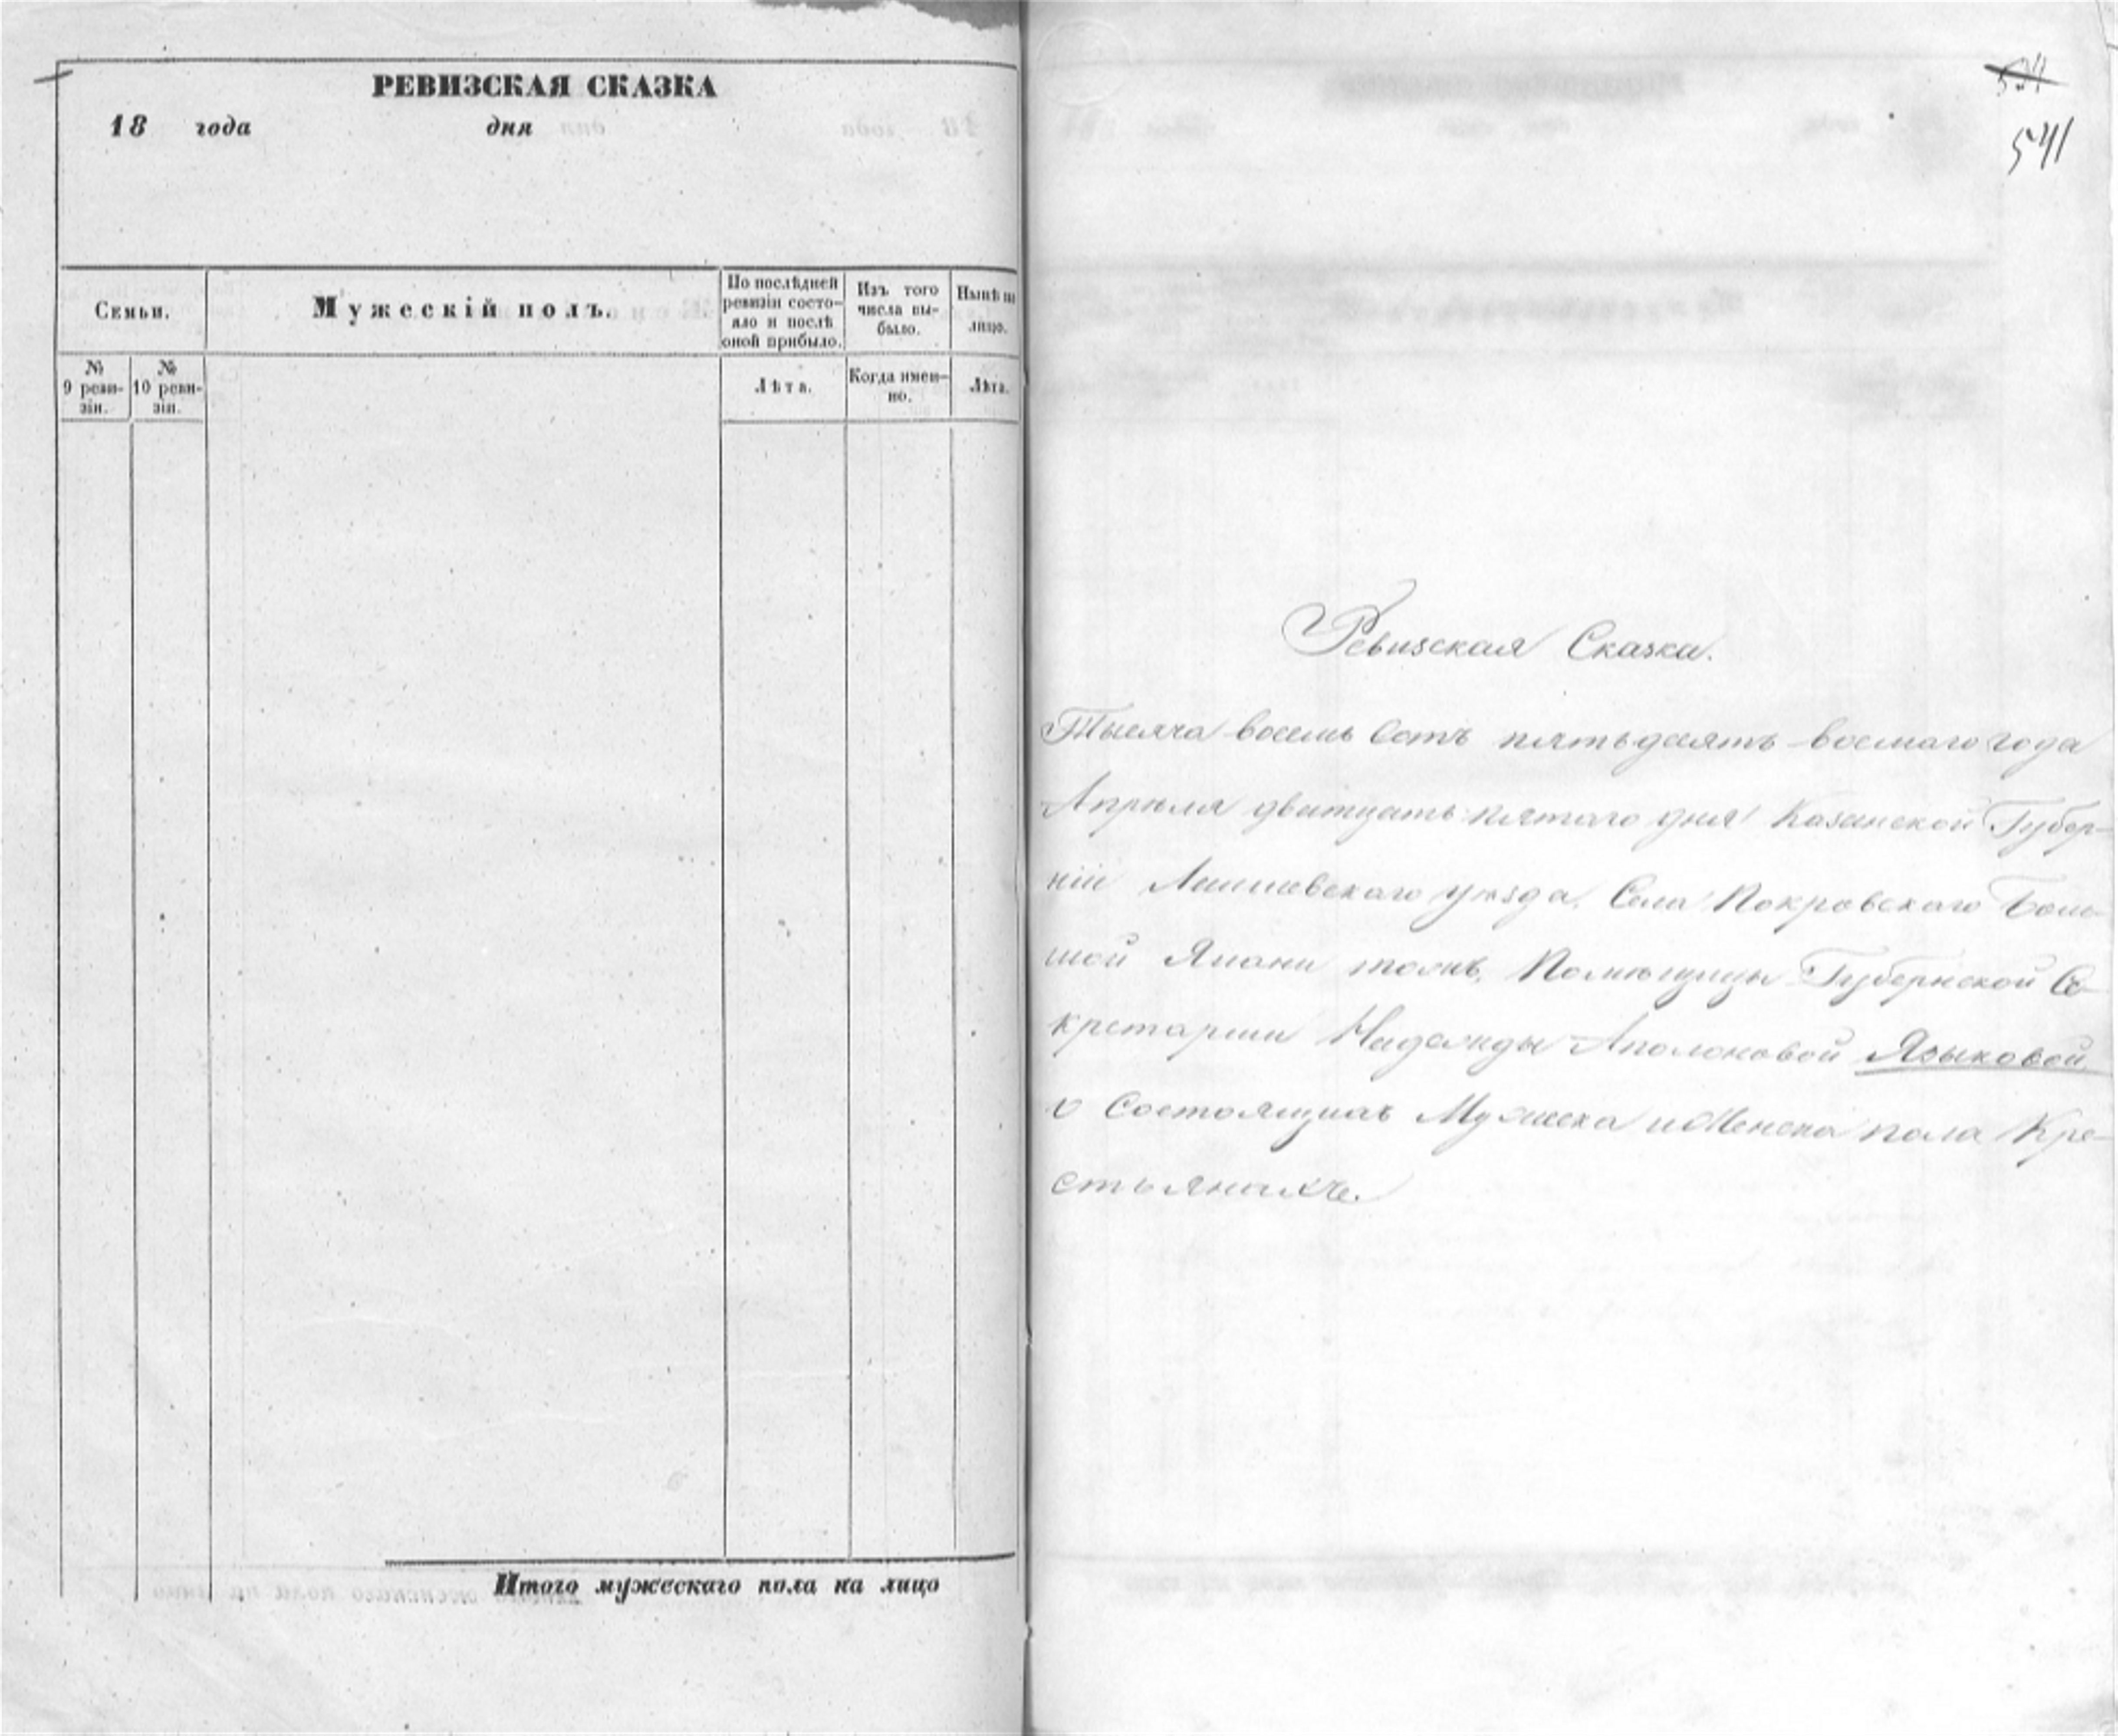 РЕВИЗСКАЯ СКАЗКА
18 года дня
Семьи.
Мужескій полъ.
По послѣдней
ревизіи состо-
яло и послѣ
оной прибыло.
Изъ того
числа вы-
было.
Нынѣ на
лицо.
№
9 реви-
зіи.
№
10 реви-
зіи.
Лѣта.
Когда имен-
но.
Лѣта.
Итого мужескаго пола на лицо
541
Ревизская Сказка.
Тысяча восемь сотъ пятьдесятъ восмаго года
Апрѣля дватцать пятаго дня Казанской Губер-
ніи Лаишевскаго уѣзда, Села Покровскаго Боль-
шой тожъ, Помѣщицы Губернской Се-
кретарши Надежды Аполоновой Языковой
о Состоящихъ Мужеска и Женска пола Кре-
стьянахъ.